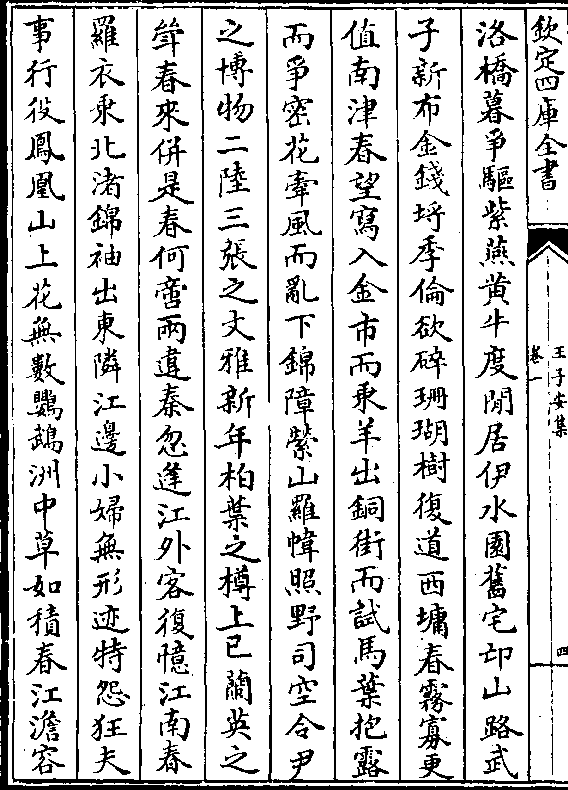 欽定四庫全書
王子安集
卷一
四
洛橋暮爭驅紫燕黃牛度閒居伊水園舊宅邙山路武
子新布金錢埒季倫欲碎珊瑚樹復道西墉春霧寡更
值南津春望寫入金市而乘羊出銅街而試馬葉抱露
而爭密花牽風而亂下錦障縈山羅幃照野司空令尹
之博物二陸三張之文雅新年柏葉之樽上巳蘭英之
斝春來併是春何啻兩違秦忽逢江外客復憶江南春
羅衣乘北渚錦袖出東隣江邊小婦無形迹特怨狂夫
事行役鳳凰山上花無數鸚鵡洲中草如積春江澹容